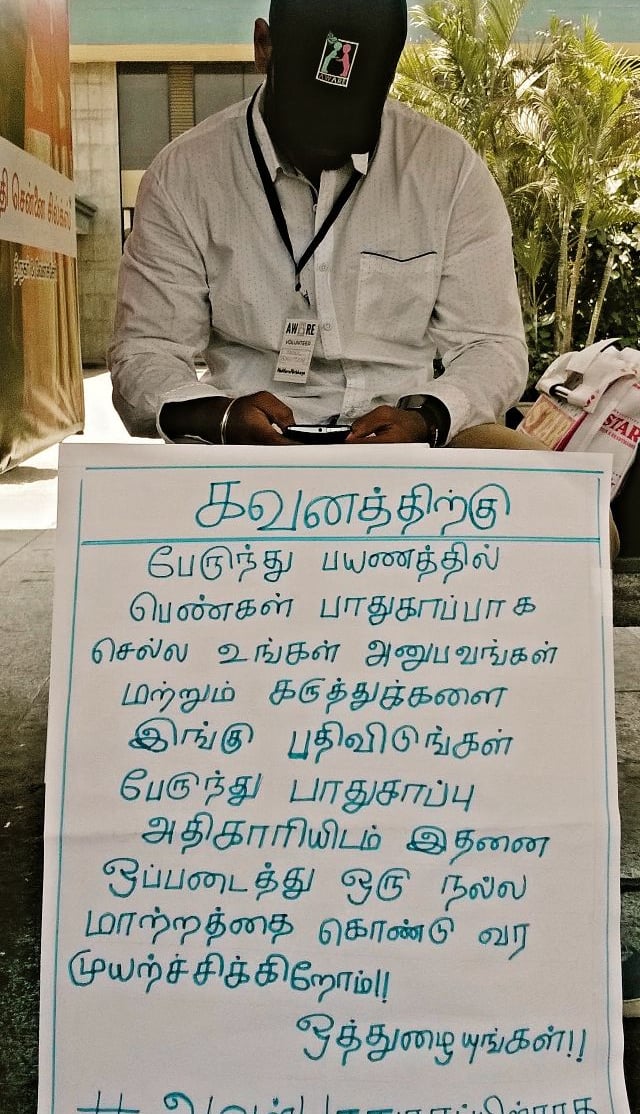 AWARE
AWARE
VOLUNTEER
தி சென்னை சில்க்ஸ்
STAR
கவனத்திற்கு
பேருந்து பயணத்தில்
பெண்கள் பாதுகாப்பாக
செல்ல உங்கள் அனுபவங்கள்
மற்றும் கருத்துக்களை
இங்கு பதிவிடுங்கள்
பேருந்து பாதுகாப்பு
அதிகாரியிடம் இதனை
ஒப்படைத்து ஒரு நல்ல
மாற்றத்தை கொண்டு வர
முயற்ச்சிக்கிறோம்!!
ஒத்துழையுங்கள்!!